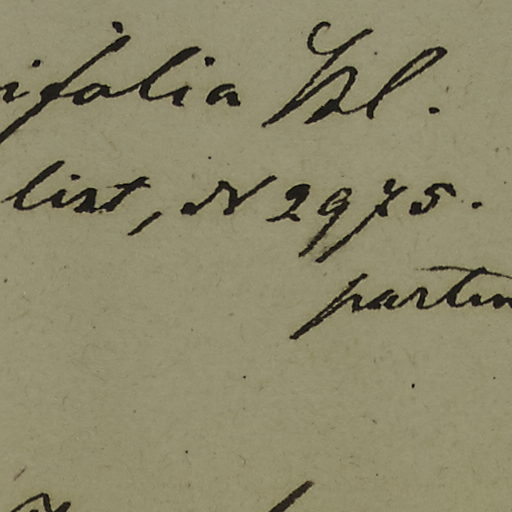 ifolia Bl.
list, N 2975.
partim